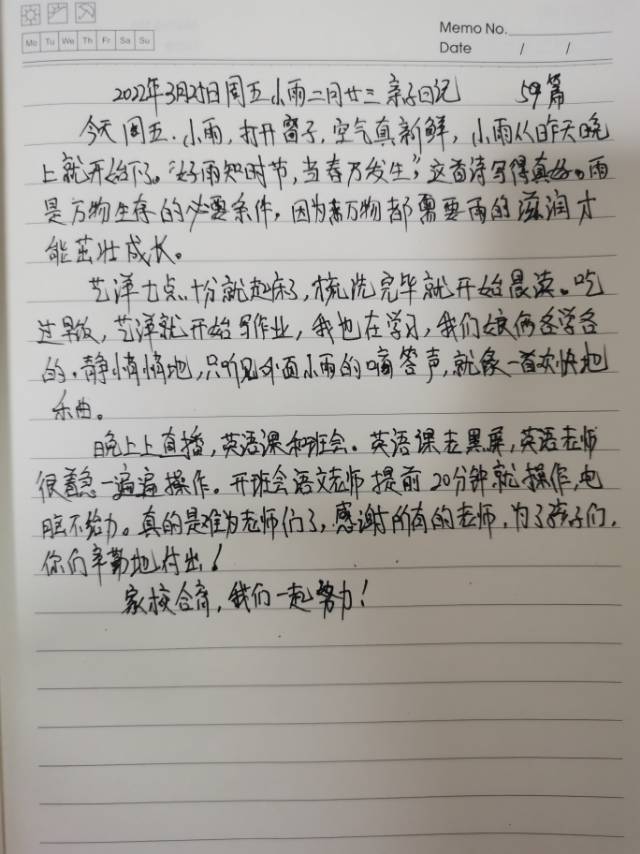 Memo No.
Mo Tu We Th Fr Sa Su
Date / /
2022年3月25日周五小雨二月廿三 亲子日记 59篇
今天周五.小雨,打开窗子,空气真新鲜,小雨从昨天晚
上就开始下了。"好雨知时节,当春乃发生",这首诗写得真好。雨
是万物生存的必要条件,因为万物都需要雨的滋润才
能茁壮成长。
艺洋七点十分就起床了,梳洗完毕就开始晨读。吃
过早饭,艺洋就开始写作业,我也在学习,我们娘俩各学各
的.静悄悄地,只听见外面小雨的嘀答声,就像一首欢快地
乐曲。
晚上上直播,英语课和班会。英语课老黑屏,英语老师
很着急一遍遍操作。开班会语文老师提前20分钟就操作,电
脑不给力。真的是难为老师们了,感谢所有的老师,为了孩子们,
你们辛勤地付出!
家校合育,我们一起努力!